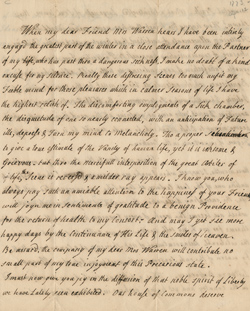 When my dear Friend Mrs Warren hears I have been intirely
engaged the greatest part of the winter in a close attendance upon the Partner
of my life, who has past thro a dangerous sickness, I make no doubt of a kind
excuse for my silence. Really these distressing Scenes too much unfit my
feeble mind for those pleasures which in calmer Seasons of life I have
the highest relish of. The discomforting employments of a Sick chamber,
the disquietude of one so nearly connected, with an anticipation of Future
ills, depress & turn my mind to Melancholy. Tho a proper
to give a low estimate of the Vanity of human life, yet is it irksome &
Grievous. but thro the mercifull interposition of the great arbiter of
Life, Scene is a milder ray appears. I know you, who
always pay such an amiable attention to the happiness of your Friend
will joyn mine sentiments of gratitude to a benign Providence
for the return of health to my Consort. And may I yet see more
happy days by the Continuance of His Life & the smiles of heaven.
Be assured, the company of my dear Mrs Warren will contribute no
small part of my true injoyment of this Precarious state.
I must now give you joy in the diffusion of that noble spirit of Liberty
we have Lately seen exhibited. Our House of Commons deserve